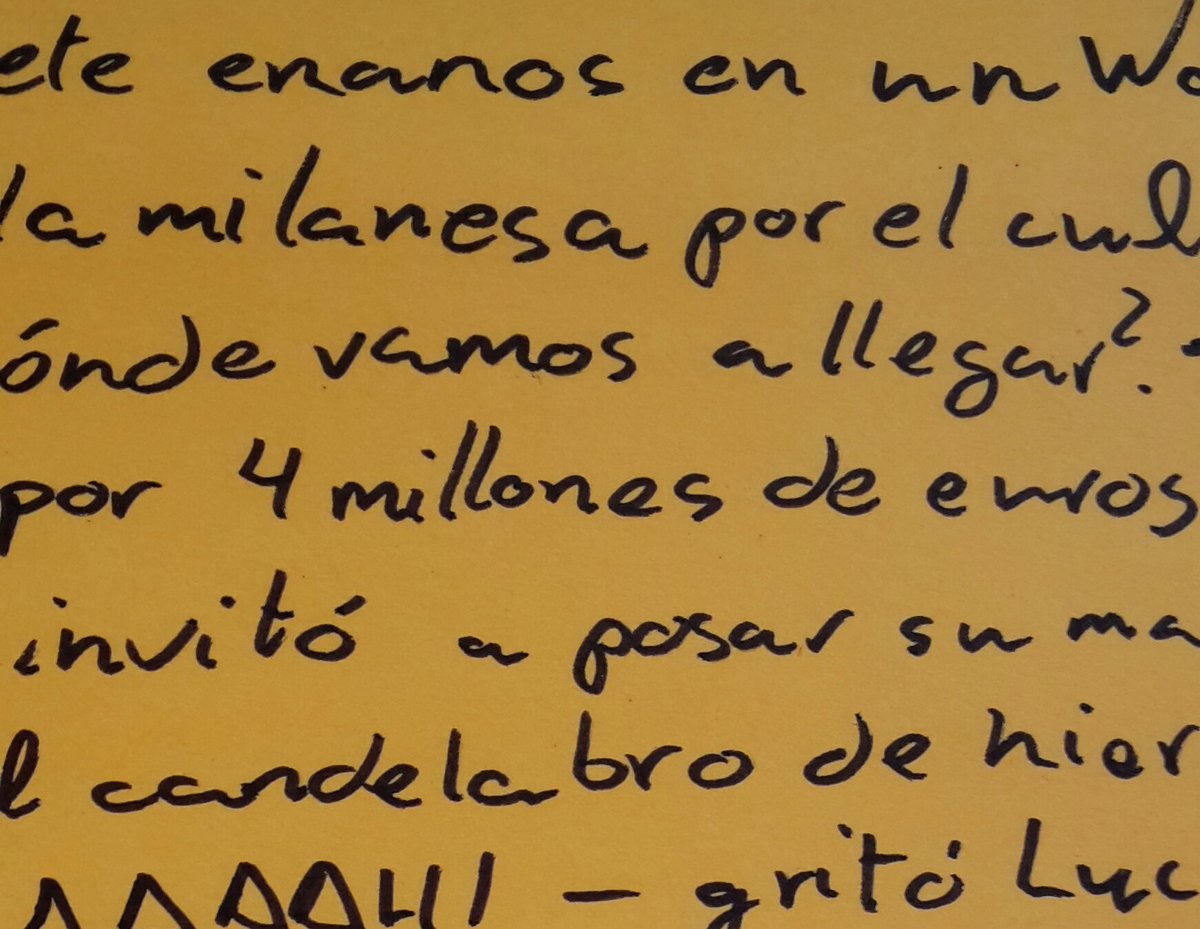 ete enanos en un Wo
la milanesa por el cul
ónde vamos a llegar? -
por 4 millones de euros
invitó a posar su ma
l candelabro de hier
AAAAH! - gritó Luc